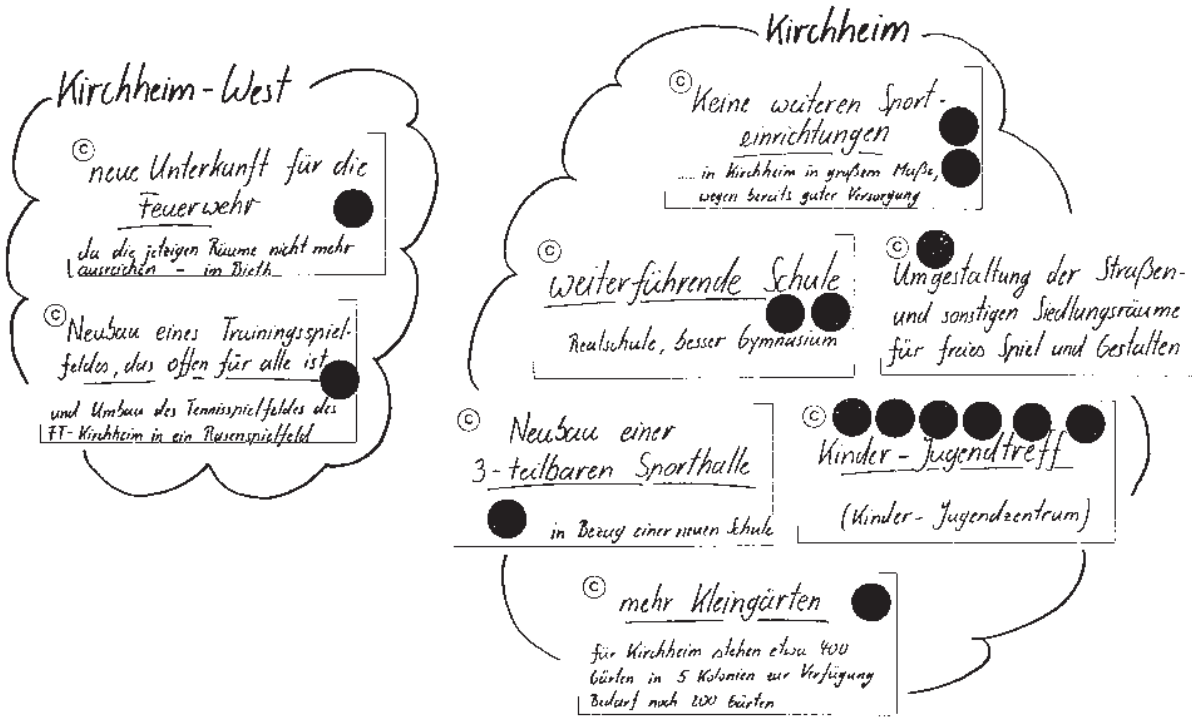 Kirchheim-West
© neue Unterkunft für die
Feuerwehr
da die jetzigen Räume nicht mehr
ausreichen - im Bieth
© Neubau eines Trainingsspiel-
feldes, das offen für alle ist
und Umbau des Tennisspielfeldes des
FT-Kirchheim in ein Rasenspielfeld
Kirchheim
© Keine weiteren Sport-
einrichtungen
.... in Kirchheim in großem Maße,
wegen bereits guter Versorgung
© weiterführende Schule
Realschule, besser Gymnasium
© Umgestaltung der Straßen-
und sonstigen Siedlungsräume
für freies Spiel und Gestalten
© Neubau einer
3-teilbaren Sporthalle
in Bezug einer neuen Schule
© Kinder-Jugendtreff
(Kinder-Jugendzentrum)
© mehr Kleingärten
für Kirchheim stehen etwa 400
Gärten in 5 Kolonien zur Verfügung
Bedarf noch 200 Gärten